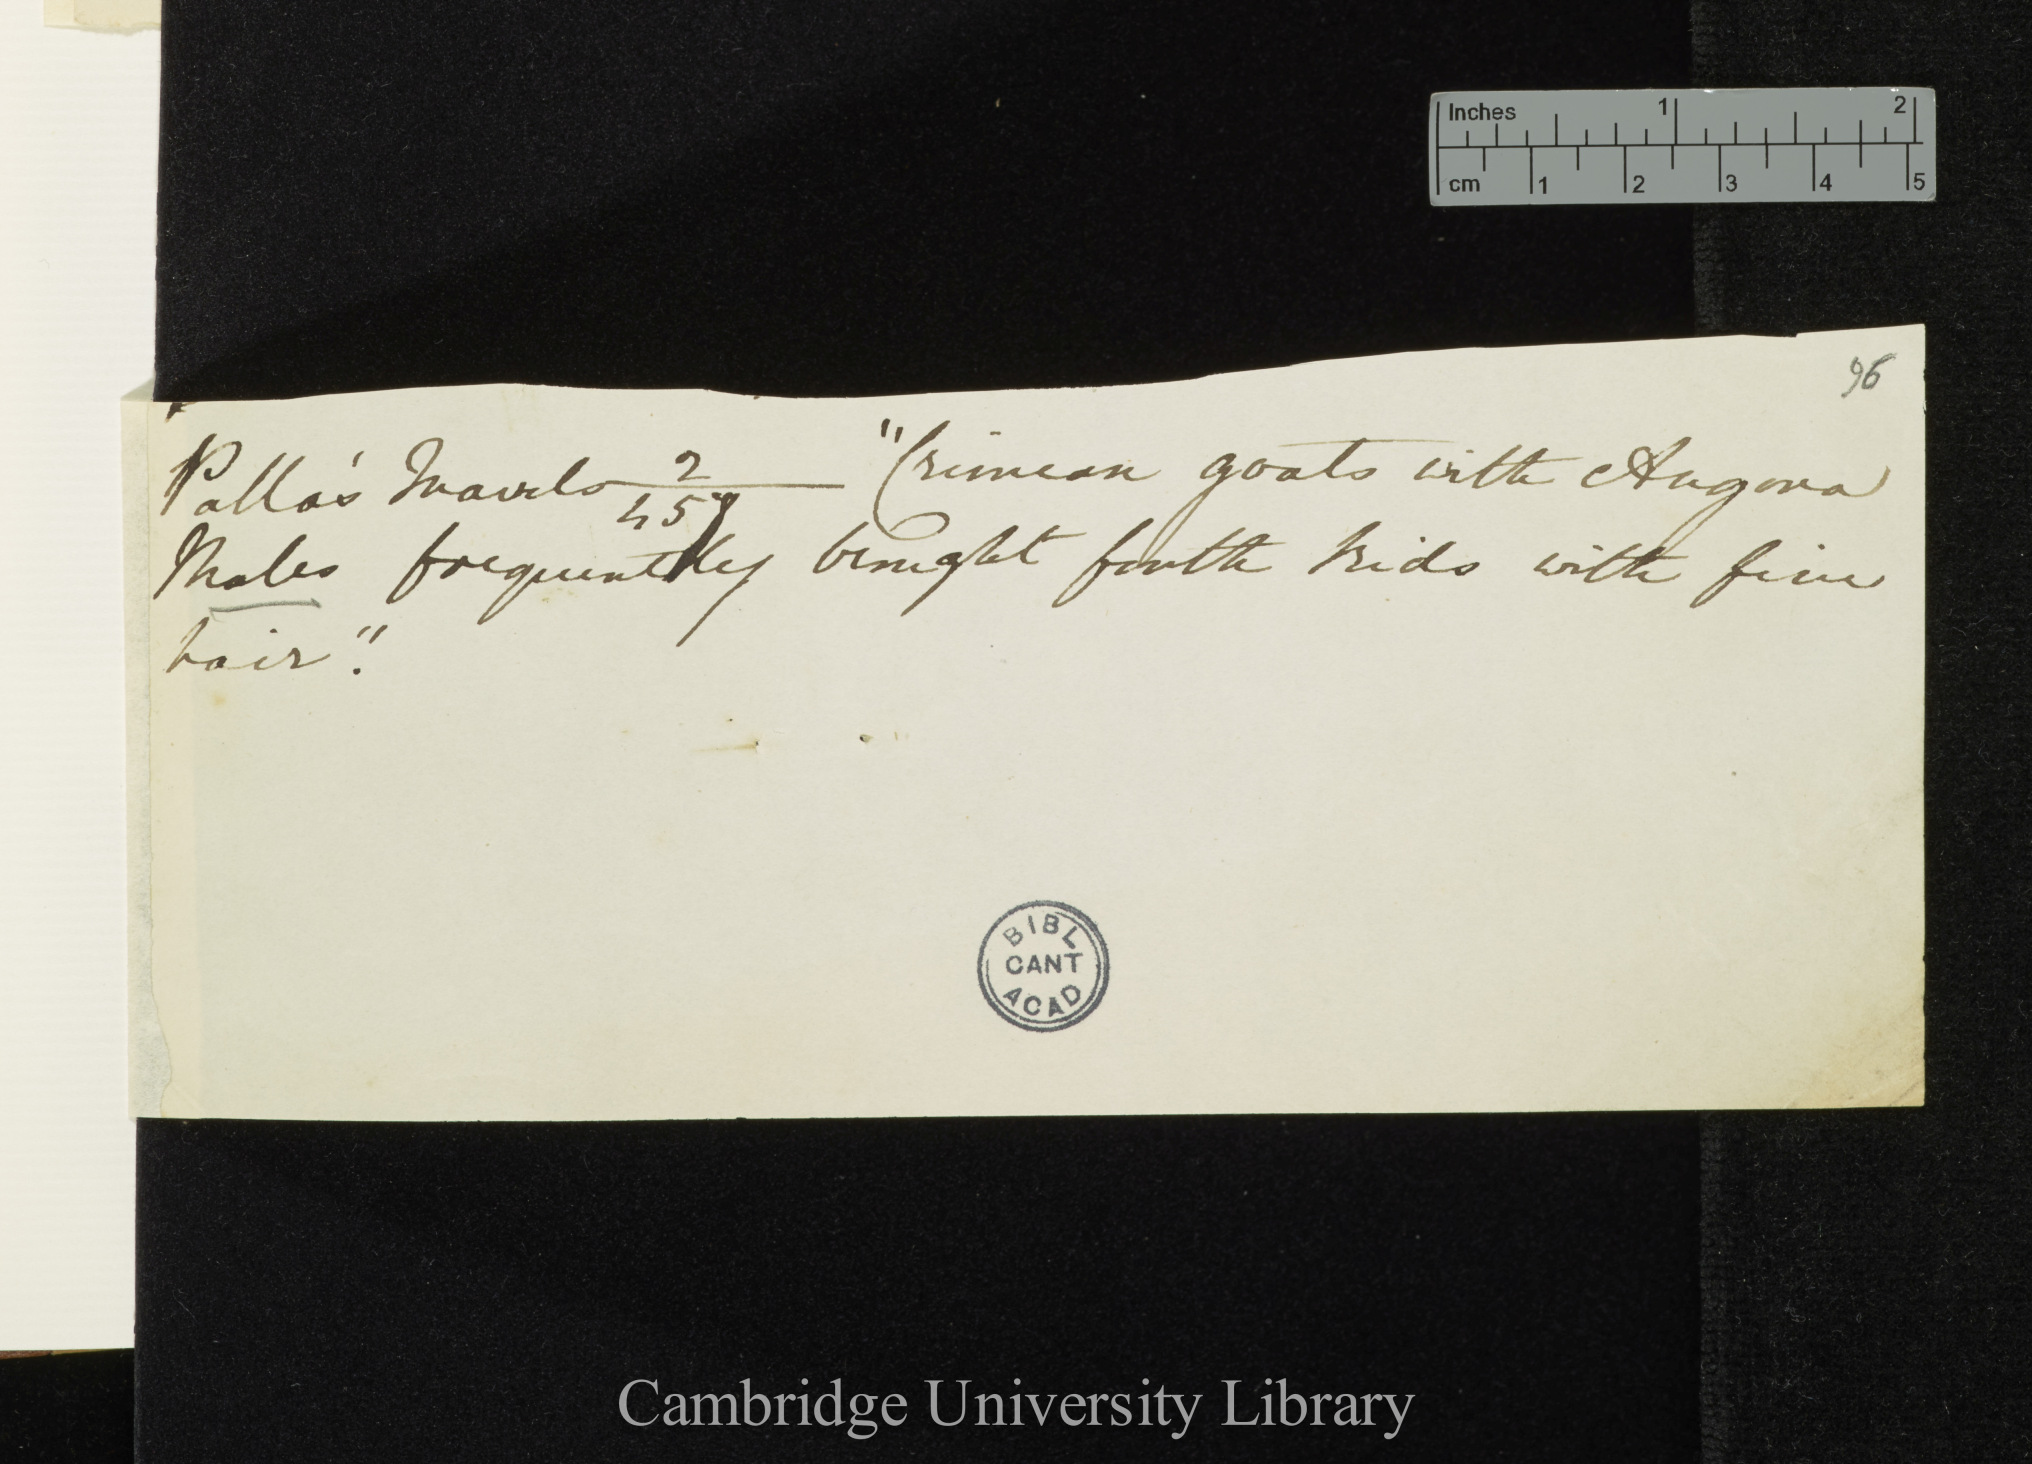 Inches 1 2
cm 1 2 3 4 5
96
Palla's Travels 2/458 "Crimean goats with Angora
Males frequently brought forth kids with fine
hair".
BIBL
CANT
ACAD
Cambridge University Library